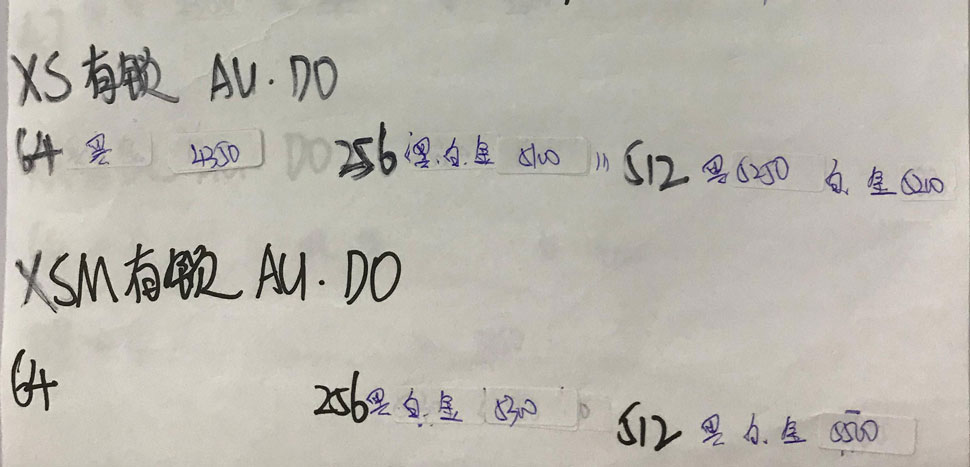 XS有锁 AU.DO
64 黑 4350 256 黑.白.金 5100 512 黑5250 白.金5200
XSM有锁 AU.DO
64 256黑白.金 5300 512 黑白.金 5500